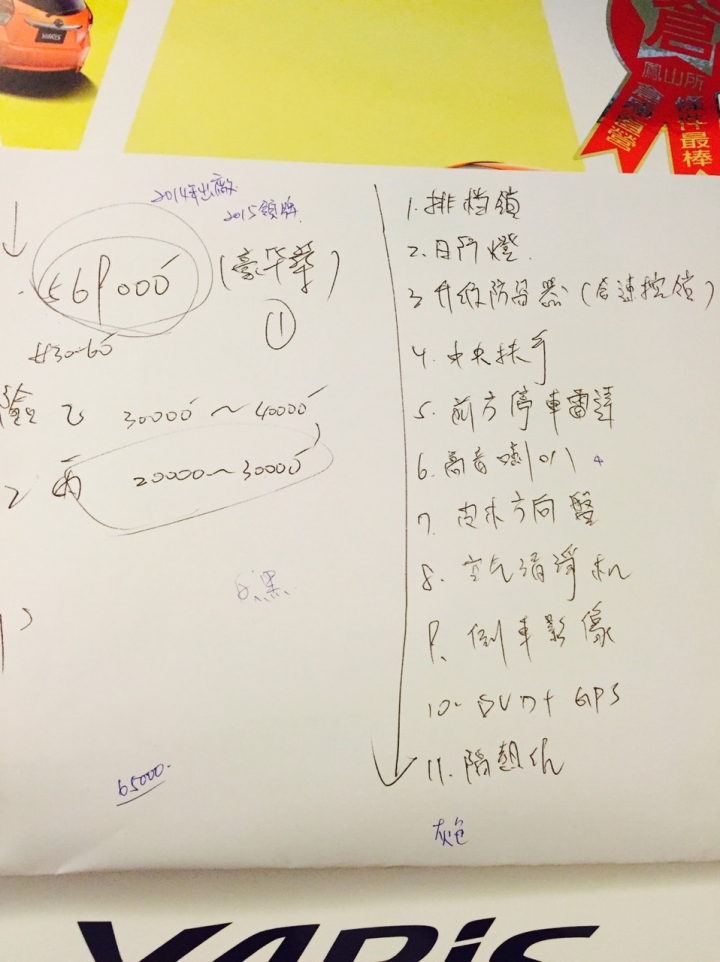 YARIS
鳳山所
倉儲直營
條件最棒
2014年出廠
2015領牌
569000 (豪華)
①
#30-60
乙 30000~40000
丙 20000~30000
白.黑
65000.
1. 排档鎖
2. 日行燈
3. 升級防盜器 (含速控鎖)
4. 中央扶手
5. 前方停車雷達
6. 高音喇叭
7. 皮木方向盤
8. 空气清淨机
9. 倒車影像
10. DVD+ GPS
11. 隔熱紙
灰色
YARiS